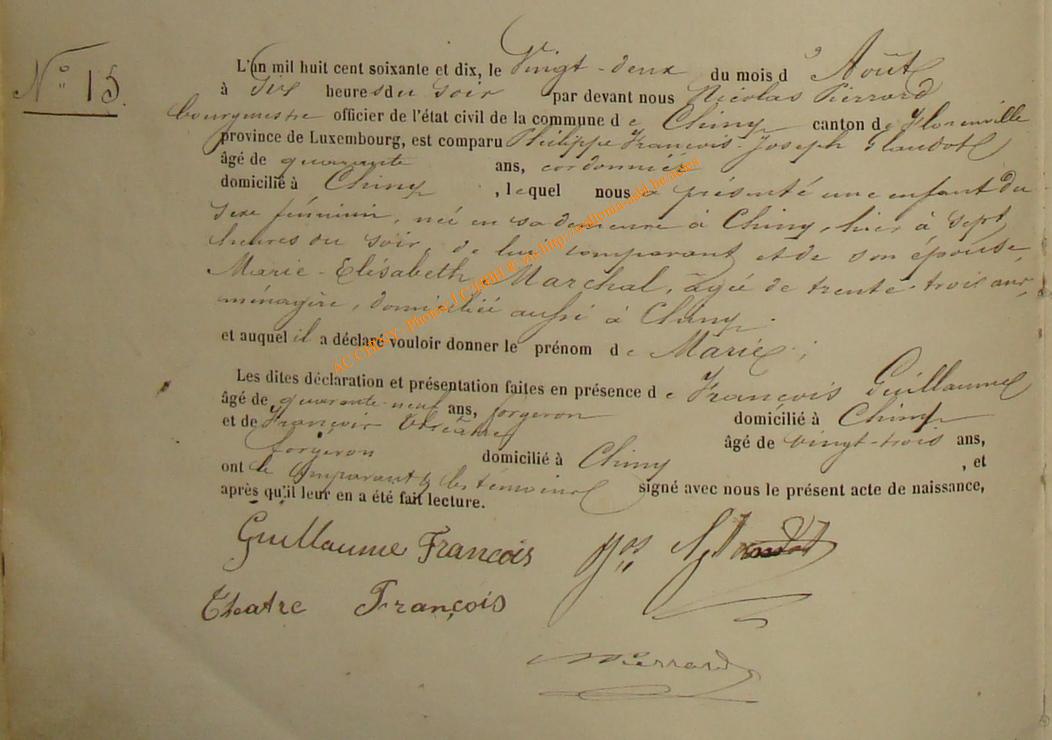 N° 15.
L'an mil huit cent soixante et dix, le Vingt-deux du mois d'Août
à Six heures du soir par devant nous Nicolas Pierrard
bourgmestre officier de l'état civil de la commune de Chiny canton de Florenville
province de Luxembourg, est comparu Philippe François-Joseph Claudot
âgé de quarante ans, cordonnier
domicilié à Chiny, lequel nous a présenté une enfant du
sexe féminin, née en sa demeure à Chiny, hier à sept
heures du soir, de lui comparant et de son épouse,
Marie-Elisabeth Marchal, âgée de trente-trois ans,
ménagère, domiciliée aussi à Chiny.
et auquel il a déclaré vouloir donner le prénom de Marie;
Les dites déclaration et présentation faites en présence de François Guillaume
âgé de quarante-neuf ans, forgeron domicilié à Chiny
et de François Théâtre âgé de vingt-trois ans,
forgeron domicilié à Chiny, et
ont le comparant & les témoins signé avec nous le présent acte de naissance,
après qu'il leur en a été fait lecture.
Guillaume François
Théatre François
Pierrard
AC CHINY - Photos J C JUHEI © via http://